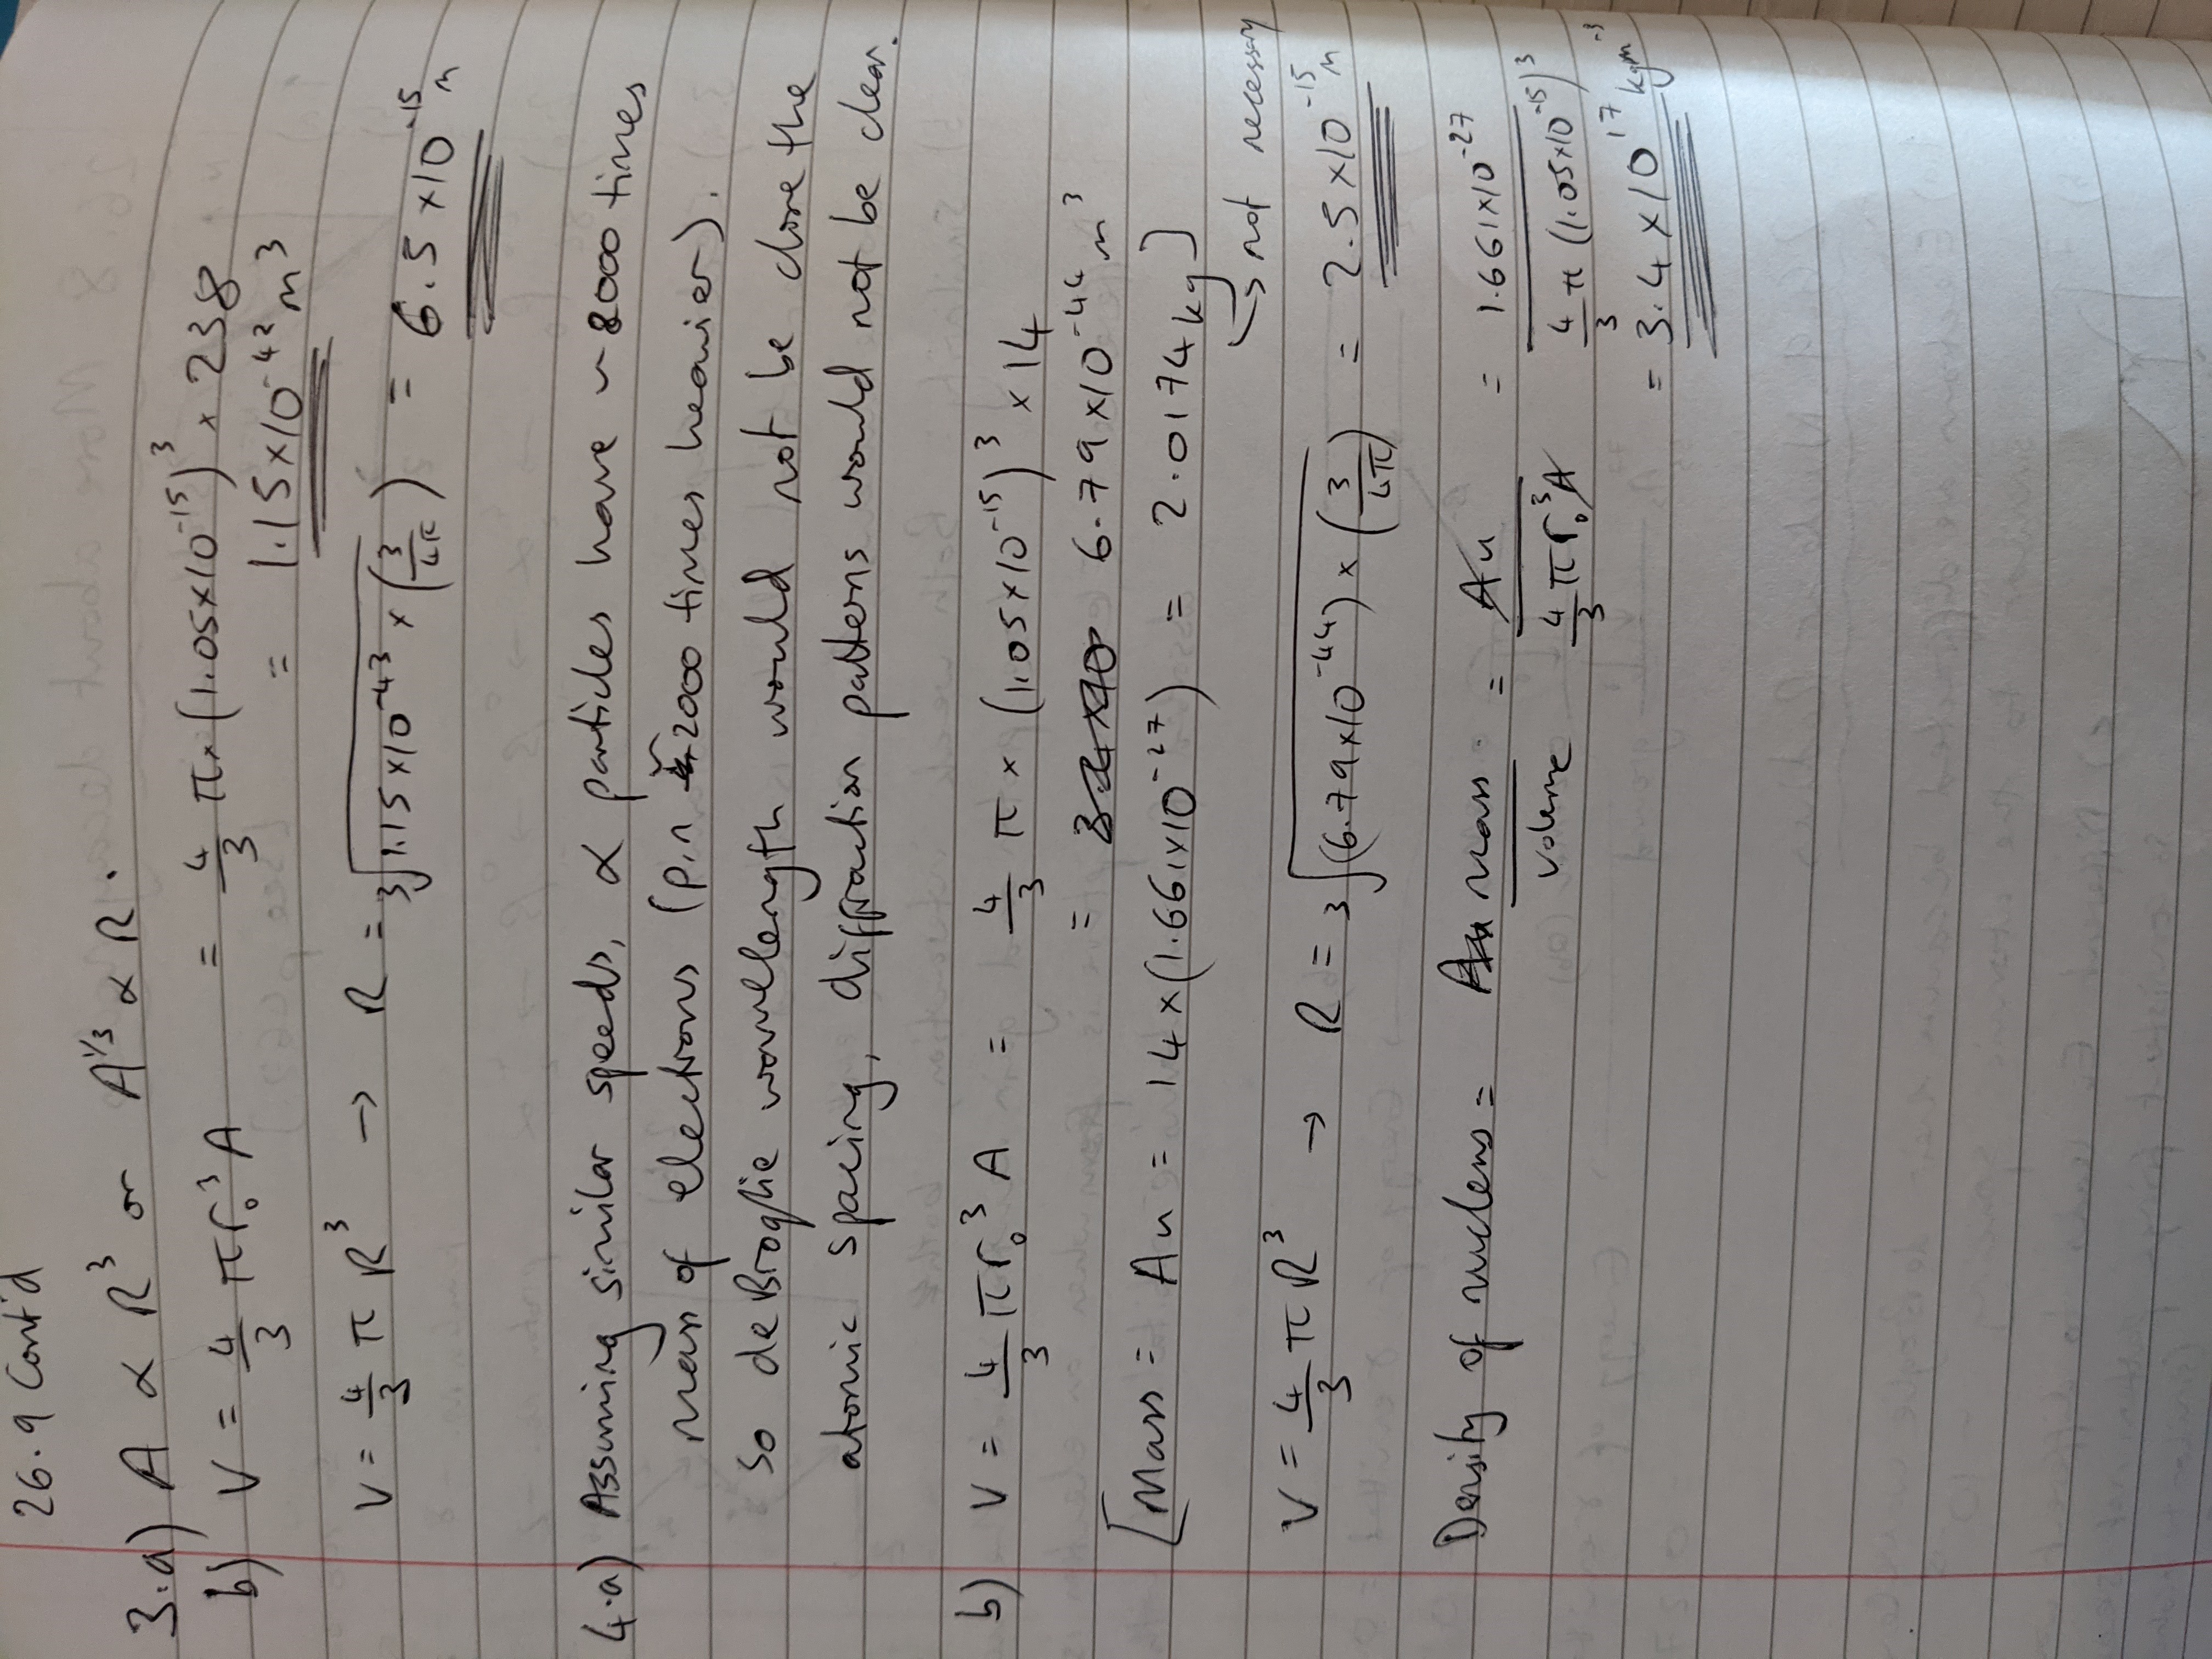 26.9 Cont'd
3.a) A ∝ R³ or A^1/3 ∝ R.
b) V = 4/3 πr₀³A = 4/3 π × (1.05×10⁻¹⁵)³ × 238
= 1.15×10⁻⁴² m³
V = 4/3 π R³ → R = ³√(1.15×10⁻⁴³ × (3/4π)) = 6.5×10⁻¹⁵ m
4.a) Assuming similar speeds, ∝ particles have ~8000 times
mass of electrons (p,n ~2000 times heavier).
so de Broglie wavelength would not be close the
atomic spacing, diffraction patterns would not be clear.
b) V = 4/3 πr₀³A = 4/3 π × (1.05×10⁻¹⁵)³ × 14
= 6.79×10⁻⁴⁴ m³
[Mass = Au = 14×(1.661×10⁻²⁷) = 2.0174kg]
↳ not necessary
V = 4/3 π R³ → R = ³√((6.79×10⁻⁴⁴) × (3/4π)) = 2.5×10⁻¹⁵ m
Density of nucleus = mass/volume = Au / 4/3 πr₀³A = 1.661×10⁻²⁷ / 4/3 π (1.05×10⁻¹⁵)³
= 3.4×10¹⁷ kgm⁻³